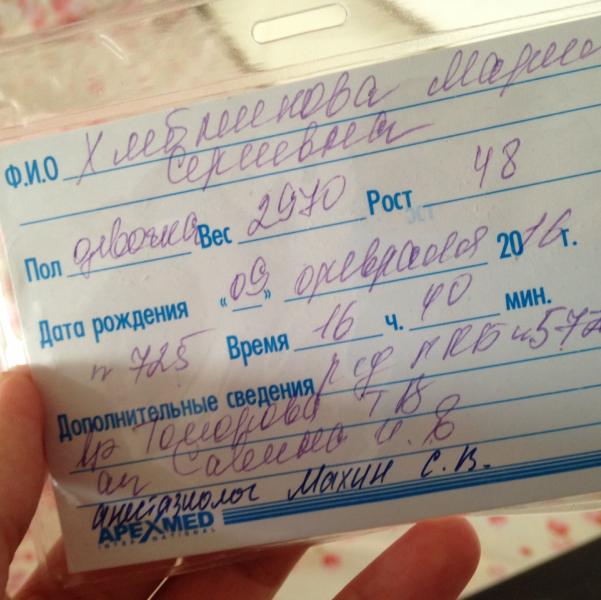 Ф.И.О Хлебникова Мария
Сергеевна
Пол девочка Вес 2970 Рост 48
Дата рождения "09" февраля 2016 г.
п 725 Время 16 ч. 40 мин.
Дополнительные сведения
вр Топорова ТВ
ак Савина
анестезиолог Махин С.В.
APEXMED
INTERNATIONAL